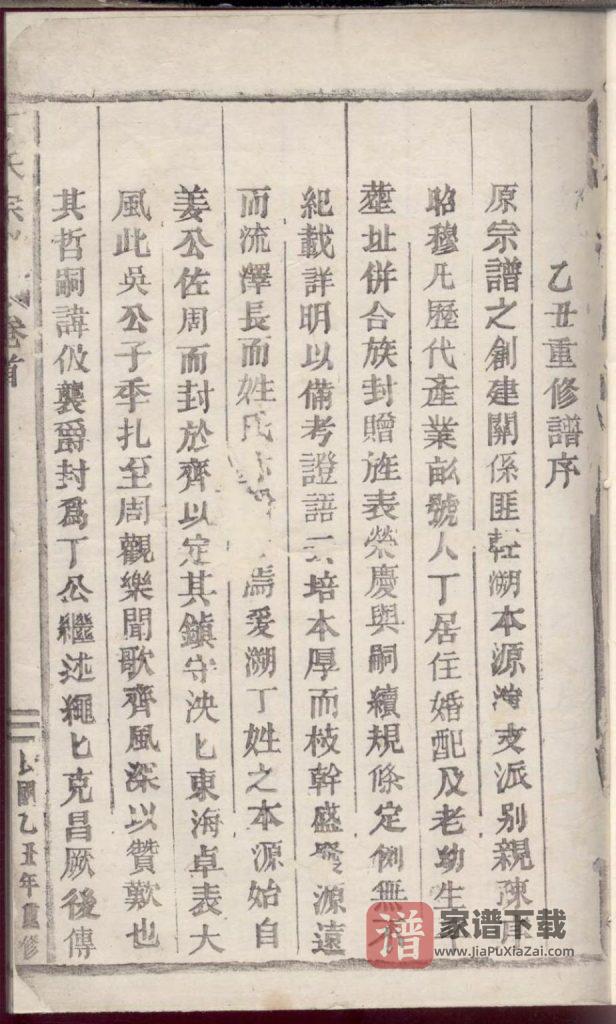 乙丑重修譜序
原宗譜之創建關係匪輕溯本源清支派别親疎
昭穆凡歷代產業畝號人丁居住婚配及老幼生
塟址併合族封贈旌表榮慶與嗣續規條定例無不
紀載詳明以備考證語云培本厚而枝幹盛發源遠
而流澤長而姓氏焉爰溯丁姓之本源始自
姜公佐周而封於齊以定其鎮守泱匕東海卓表大
風此吳公子季扎至周觀樂聞歌齊風深以贊歎也
其哲嗣諱伋襲爵封爲丁公繼述繩匕克昌厥後傳
氏宗 卷首
民國乙丑年重修
谱 家谱下载
www.JiaPuXiaZai.com